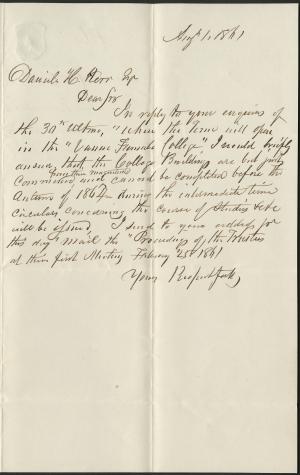 Augt 1. 1861
Daniel H. Kerr Esq
Dear Sir
In reply to your enquiry of
the 30th Ultimo, "When the Term will open
in the "Vassar Female College", I would briefly
answer, that the College Buildings are but just
Commenced and cannot be completed before the
from their magnitude
Autumn of 1864 During the intermediate time
Circulars concerning the course of Studies &c &c
will be issued, I send to your address for
this days mail the "Proceedings of the Trustees
at their first Meeting February 25th 1861
Yours Respectfully